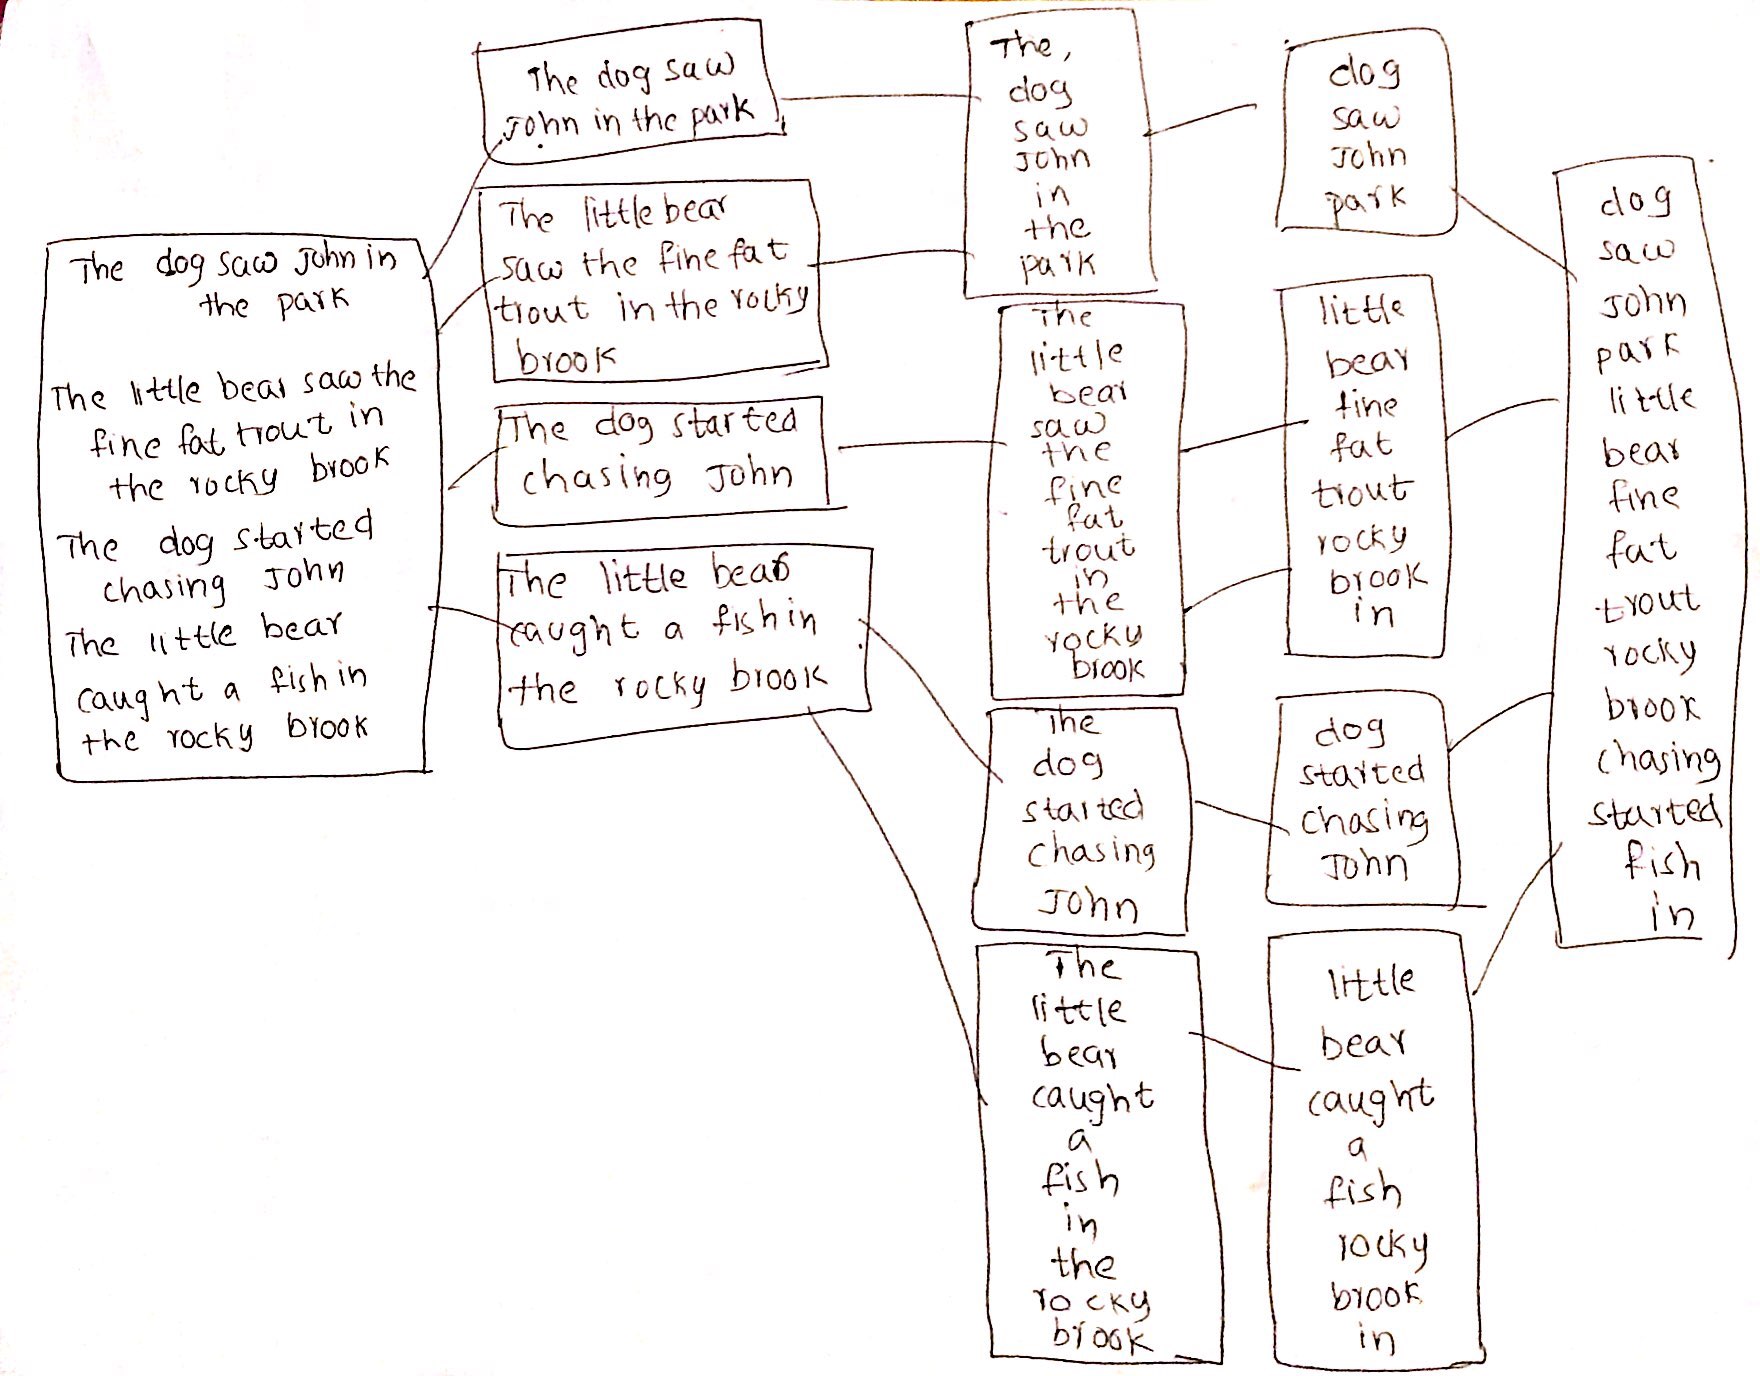 The dog saw John in
the park
The little bear saw the
fine fat trout in
the rocky brook
The dog started
chasing John
The little bear
caught a fish in
the rocky brook
The dog saw
John in the park
The little bear
saw the fine fat
trout in the rocky
brook
The dog started
chasing John
The little bear
caught a fish in
the rocky brook
The,
dog
saw
John
in
the
park
The
little
bear
saw
the
fine
fat
trout
in
the
rocky
brook
The
dog
started
chasing
John
The
little
bear
caught
a
fish
in
the
rocky
brook
dog
saw
John
park
little
bear
fine
fat
trout
rocky
brook
in
dog
started
chasing
John
little
bear
caught
a
fish
rocky
brook
in
dog
saw
John
park
little
bear
fine
fat
trout
rocky
brook
chasing
started
fish
in